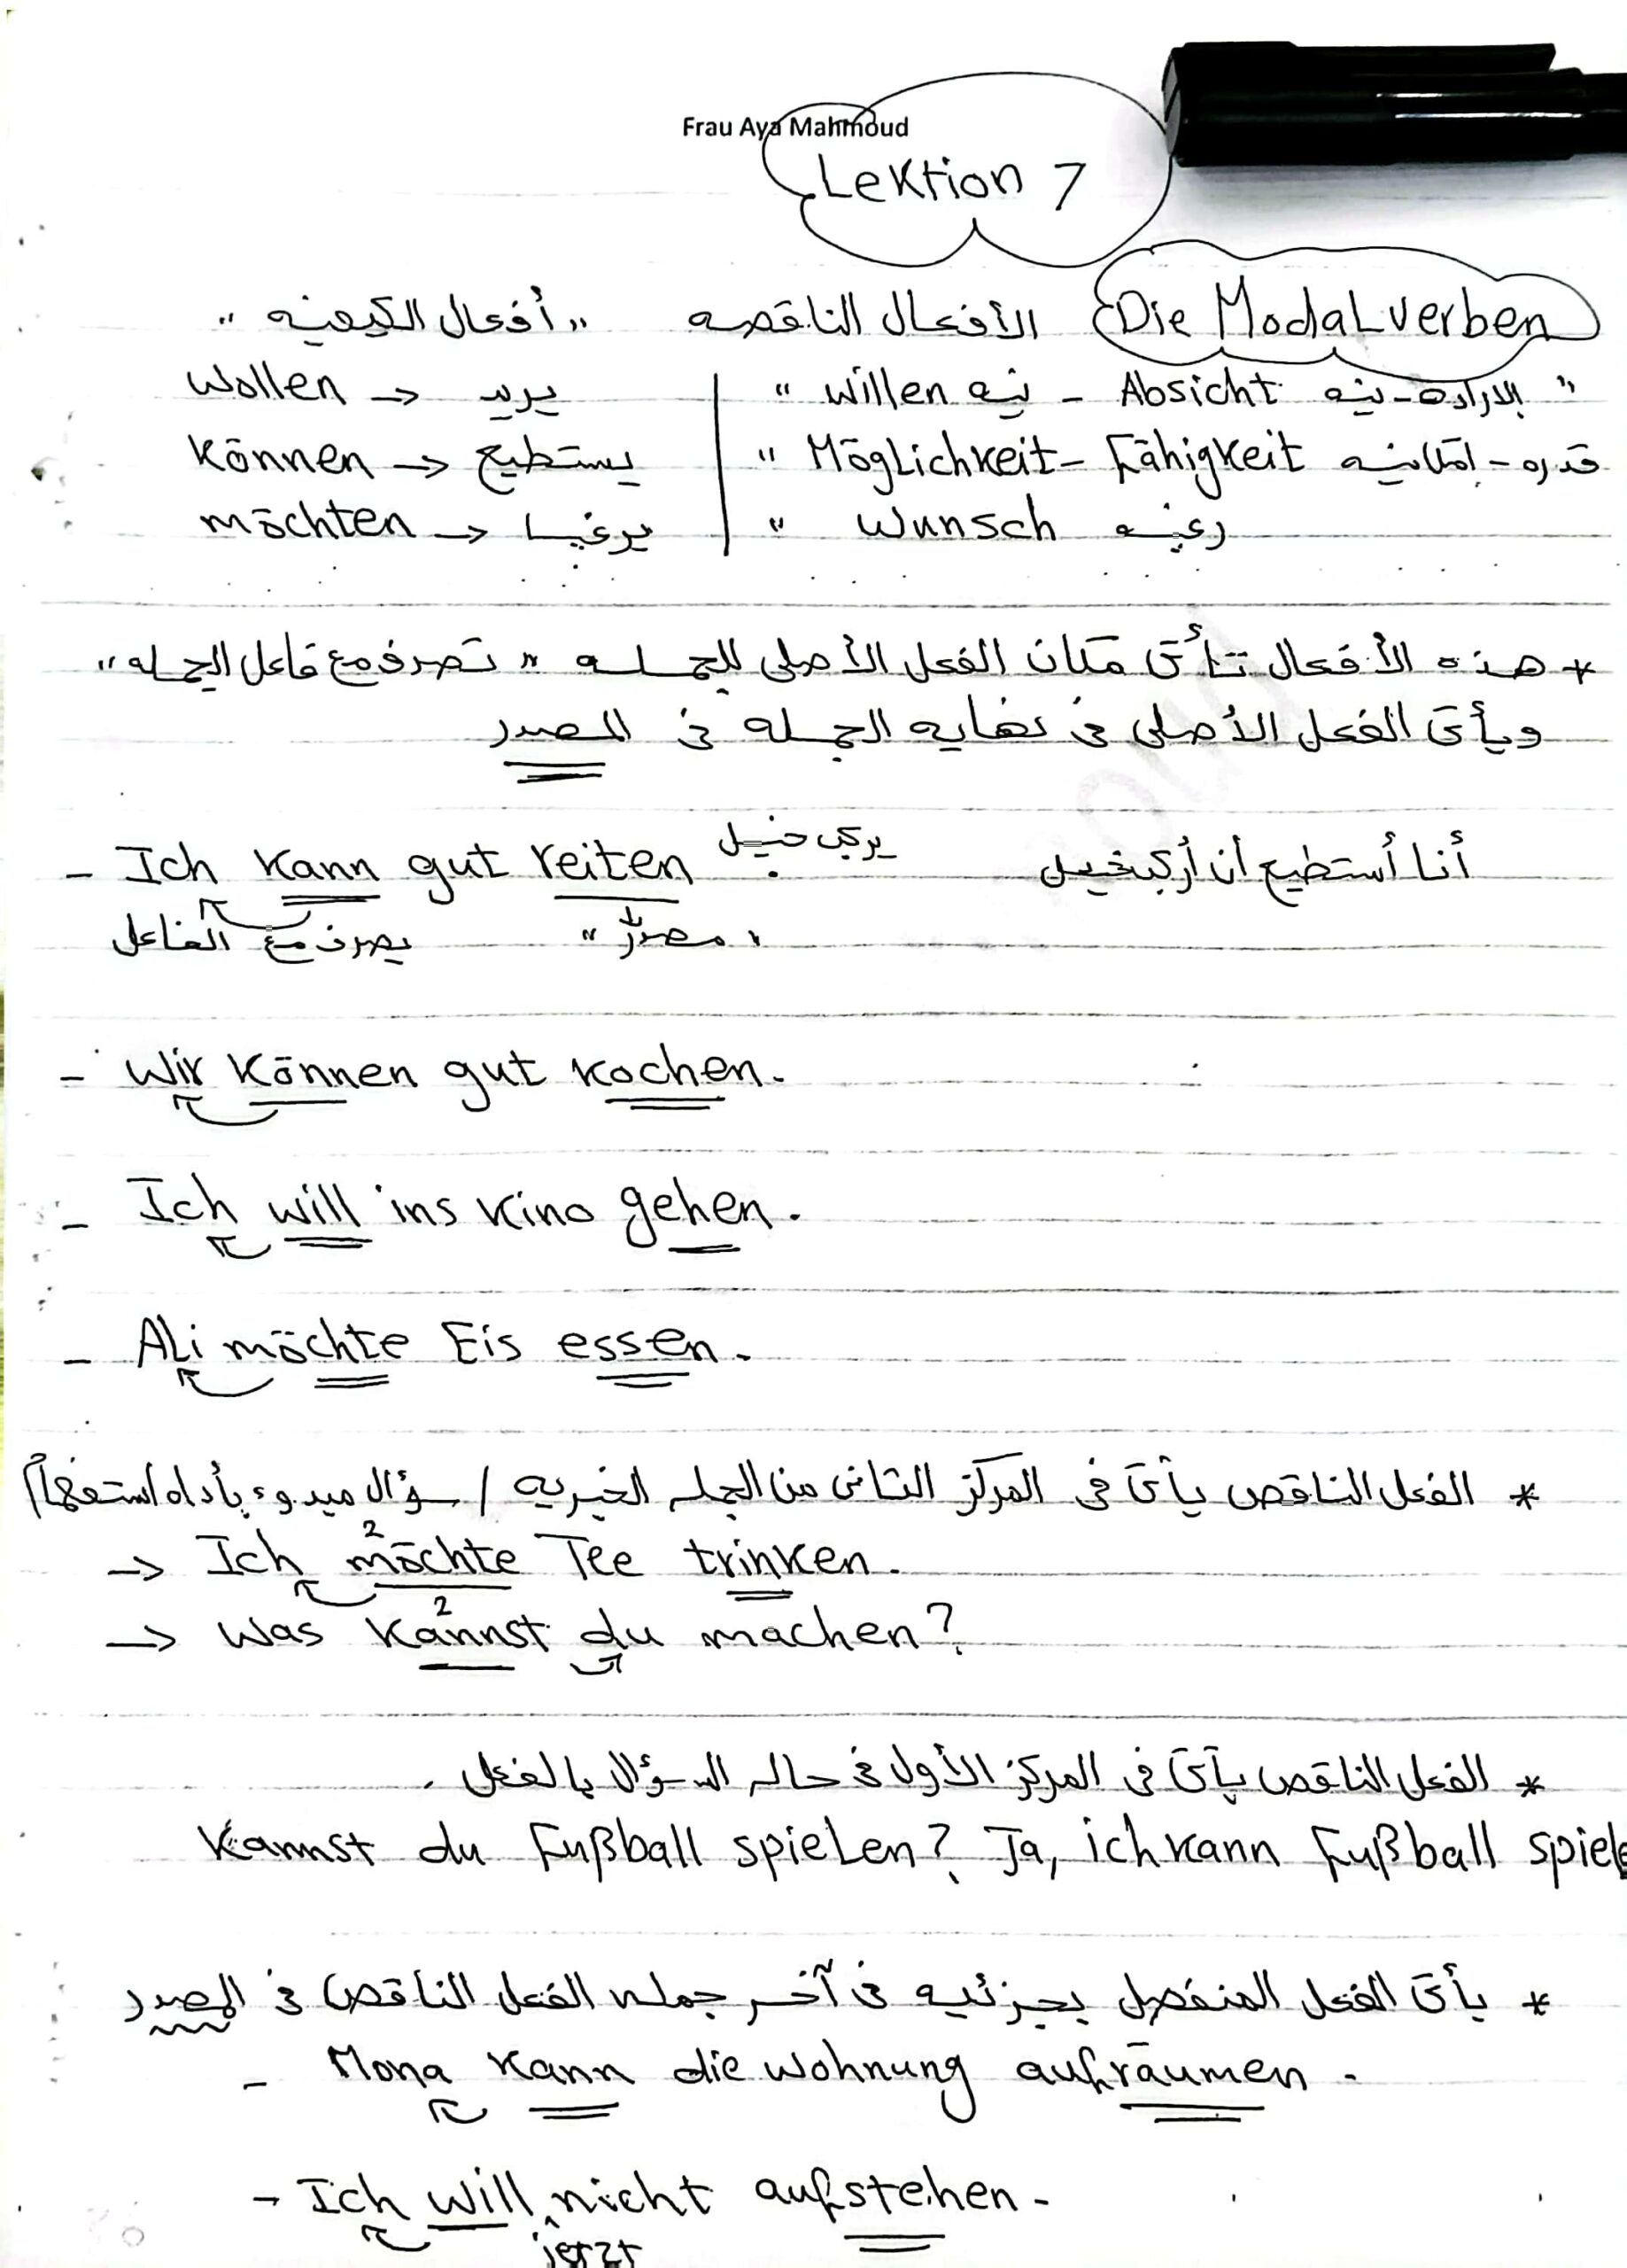 Frau Aya Mahmoud
Lektion 7
Die Modalverben الأفعال الناقصه "أفعال الكيفيه"
wollen → يريد | " Willen نيه - Absicht الاراده - نيه "
können → يستطيع | " Möglichkeit - Fähigkeit قدره - إمكانيه
möchten → يرغب | " Wunsch رغبه
* هذه الأفعال تأتى مكان الفعل الأصلى للجمله " تصرف مع فاعل الجمله "
ويأتى الفعل الأصلى فى نهايه الجمله فى المصدر
- Ich kann gut reiten يركب خيل . أنا أستطيع أن أركب خيل
يصرف مع الفاعل " مصدر "
- Wir können gut kochen.
- Ich will ins Kino gehen.
- Ali möchte Eis essen.
* الفعل الناقص يأتى فى المركز الثانى من الجمله الخبريه / سؤال مبدوء بأداه استفهام
2
→ Ich möchte Tee trinken.
2
→ Was kannst du machen?
* الفعل الناقص يأتى فى المركز الأول فى حاله السؤال بالفعل .
Kannst du Fußball spielen? Ja, ich kann Fußball spiele
* يأتى الفعل المنفصل بجزئيه فى آخر جمله الفعل الناقص فى المصدر
- Mona kann die Wohnung aufräumen .
- Ich will nicht aufstehen -
jetzt